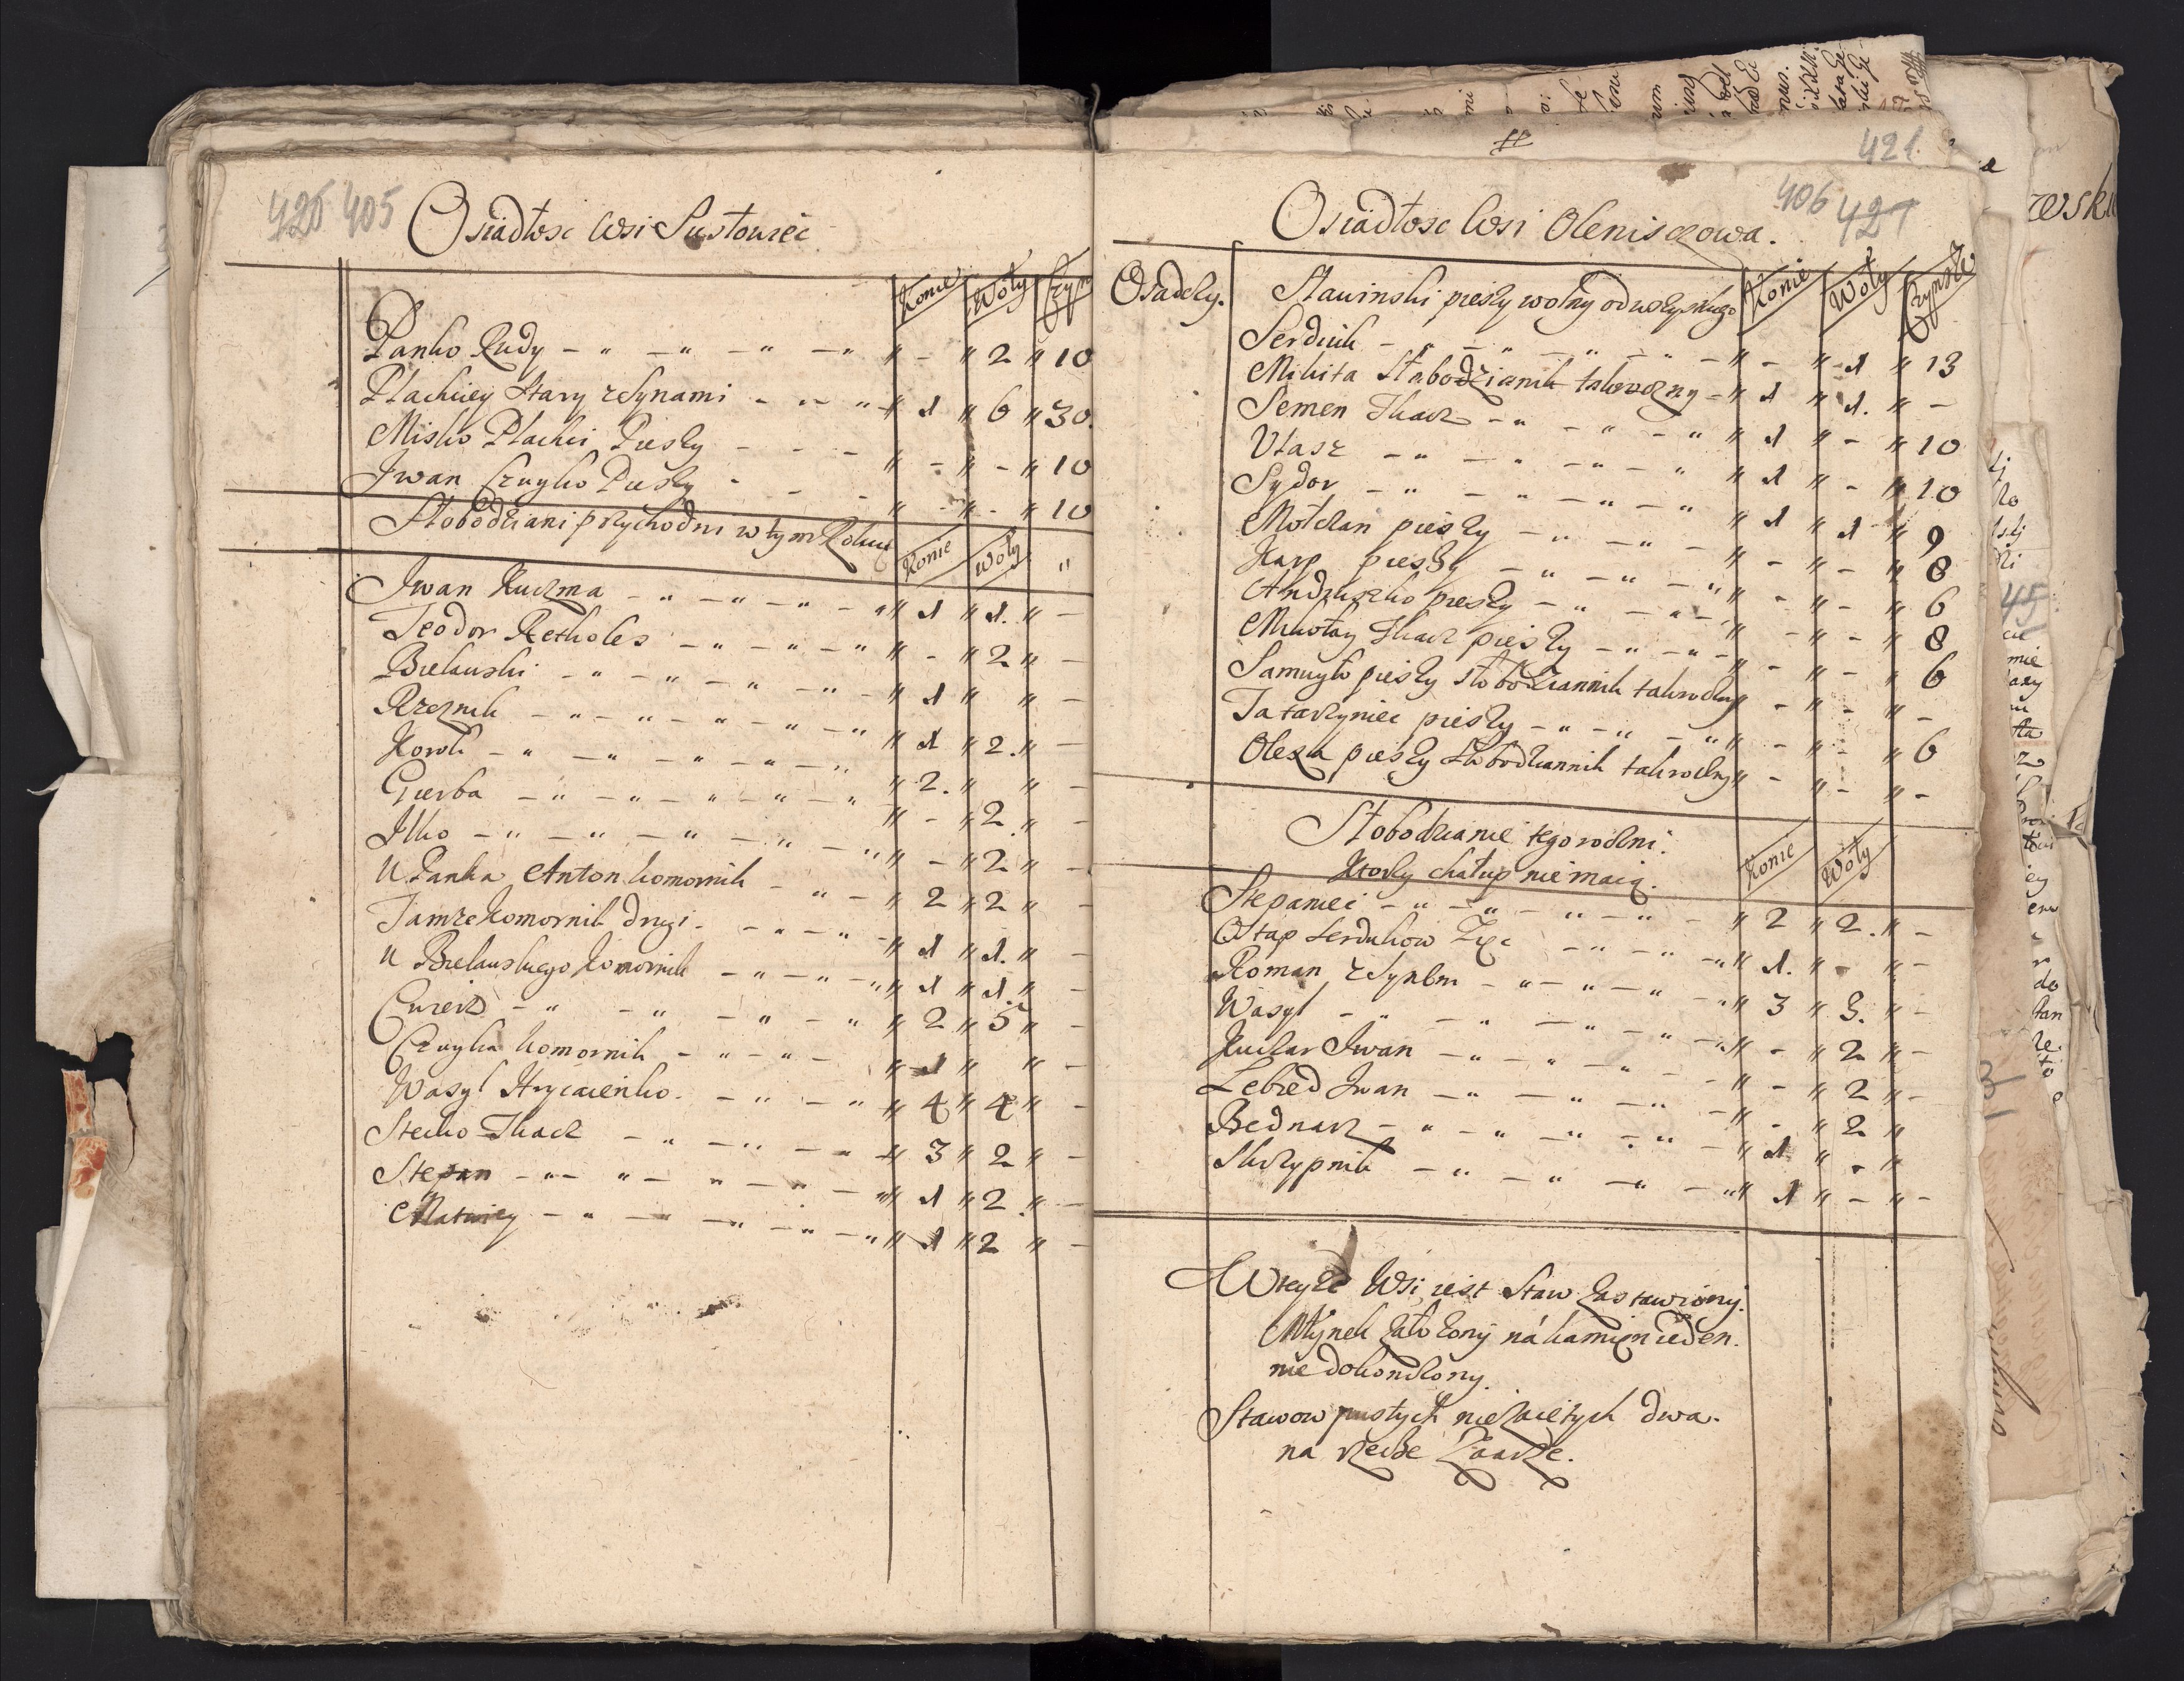 420 405
Osiadłosc Wsi Sustowiec
Konie Woły Czyn
Panko Rudy - " - " - " - " " - " 2 " 10
Płachciey Stary z Synami - " - " " 1 " 6 " 30.
Misko Płachci Pieszy - - - " - " - " 10
Jwan Czuyko Pieszy - - - " - " - " 10
Słobodziani przychodni w tym Roku Konie Woły "
Jwan Kuczma - " - " - " - " " 1 " 1. " -
Teodor Rethołes - " - " - " " - " 2 " -
Bielawski - " - " - " - " - " 1 " " -
Rzeznik - " - " - " - " - " " 1 " 2. " -
Kowb - " - " - " - " - " " 2. " " -
Gierba - " - " - " - " - " " - " 2 " -
Ilko - " - " - " - " - " " - " 2 " -
U Panka Anton komornik - " - " 2 " 2 " -
Tamze Komornik drugi - - " - " - " 1 " 1. " -
U Bielawskiego Komornik - " - " - " " 1 " 1. " -
- " - " - " - " " 2 " 5 " -
Czuyka komornik - " - " - " 1 " " -
Wasyl Hrycaienko. - " - " " 4 " 4 " -
Stecko Tkacz - " - " - " 3 " 2 " -
Stepan - " - " - " - " - " " 1 " 2. " -
Matwiey - " - " - " - " - " " 1 " 2 " -
421.
406 427
Osiadłosc Wsi Oleniszowa.
Osadczy. Stawinski pieszy wolny od wszystkiego Konie Woły Czynsze
Serdiuk - " - " - " - " - " - " 1 " 13
Mikita Słobodzianik takroczny - " 1 " 1. " -
Semen Tkacz - " - " - " " 1 " - " 10
Ułasz - " - " - " - " " 1 " - " 10
Sydor - " - " - " - " " 1 " 1 " 9
Mołczan pieszy - " - " - " - " - " 8
Karp pieszy - " - " - " " - " - " 6
Andruszko pieszy - " - " - " - " - " 8
Mikołay Tkacz pieszy - " - " - " - " - " 6
Samuyło pieszy słobodziannik takroczny " - " - " -
Tatarzyniec pieszy - " - " - " " - " - " 6
Olexa pieszy Słobodziannik takroczny " - " - " -
Słobodzianie tegoroczni.
Ktorzy chałup nie maią. Konie Woły
Stepaniec - " - " - " - " - " 2 " 2. " -
Ostap Serdukow Zięc - " - " - " " 1. " - " -
Roman z Synem - " - " - " - " " 3 " 3. " -
Wasyl - " - " - " - " - " " - " 2 " -
Kuczar Jwan - " - " - " - - " - " 2 " -
Lebied Jwan - " - " - " - " - " 2 "
Bednarz - " - " - " - " - " 1 " - "
Skrzypnik - " - " - " - " " 1 " - " -
W teyze Wsi iest Staw zastawiony.
Młynek założony ná kamięn ieden.
nie dokonczony.
Stawow pustych niezaiętych dwa.
na rzecze